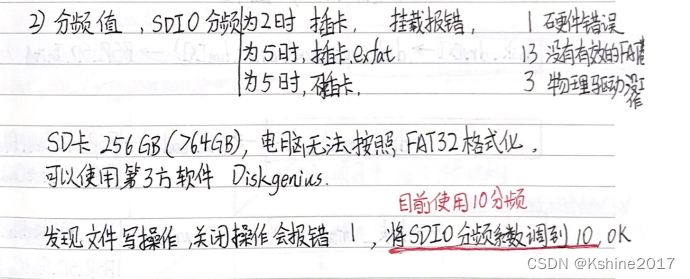 2) 分频值，SDIO分频为2时 插卡，挂载报错，1 硬件错误
为5时，插卡，exfat 13 没有有效的FAT卷
为5时，不插卡，3 物理驱动没工作
SD卡 256GB(>64GB)，电脑无法按照 FAT32格式化，
可以使用第3方软件 Diskgenius.
目前使用10分频
发现文件写操作，关闭操作会报错 1，将SDIO分频系数调到10，OK
CSDN @Kshine2017